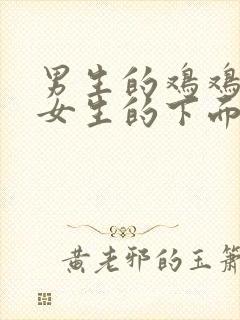 男生的鸡鸡
女生的下而
黄老邪的玉箫